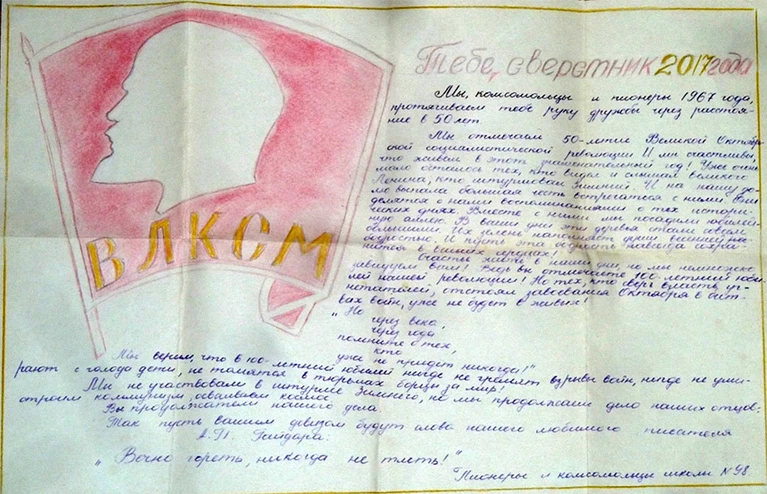 Тебе, сверстник 2017 года
Мы, комсомольцы и пионеры 1967 года,
протягиваем тебе руку дружбы через расстоя-
ние в 50 лет.
Мы отмечаем 50-летие Великой Октябрь-
ской социалистической революции! И мы счастливы,
что живём в этот знаменательный год! Уже очень
мало осталось тех, кто видел и слышал великого
Ленина, кто штурмовал Зимний. И на нашу до-
лю выпала большая честь встретиться с ними. Они
делятся с нами воспоминаниями о тех истори-
ческих днях. Вместе с ними мы посадили юбилей-
ную аллею. В ваши дни эти деревья стали совсем
большими. Их зелень напоминает
бодростью. И пусть эта бодрость навсегда сохра-
нится в ваших сердцах!
Счастье жить в наши дни, но мы немножко
завидуем вам! Ведь вы отмечаете 100-летний юби-
лей нашей революции! Но тех, кто сверг власть уг-
нетателей, отстоял завоевания Октября в бит-
вах войн, уже не будет в живых!
„Но
через века,
через года
помните о тех,
кто
уже не придёт никогда!"
Мы верим, что в 100-летний юбилей нигде не гремят взрывы войн, нигде не уми-
рают с голода дети, не томятся в тюрьмах борцы за мир!
Мы не участвовали в штурме Зимнего, но мы продолжаем дело наших отцов:
строим коммунизм, осваиваем космос.
Вы продолжатели нашего дела.
Так пусть вашим девизом будут слова нашего любимого писателя
А. П. Гайдара:
„Вечно гореть, никогда не тлеть!"
Пионеры и комсомольцы школы №98.
ВЛКСМ